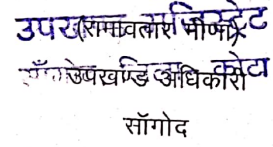 उपखण्ड मजिस्ट्रेट
(रामावतार मीणा)
उपखण्ड अधिकारी
कोटा
सॉंगोद